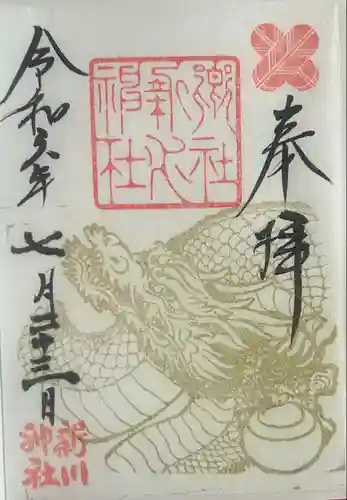 奉拝
郷社
新川
神社
令和六年
七月二十三日
新川
神社